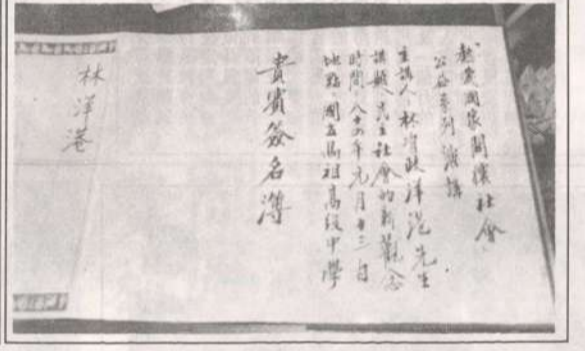 熱愛國家關懷社會
公益系列演講
主講人：林資政洋港先生
講題：民主社會的新觀念
時間：八十四年元月十三日
地點：國立馬祖高級中學
貴賓簽名簿
林洋港